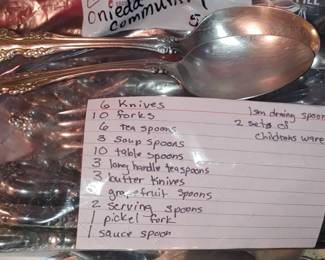 Onieda
community
6 Knives
10 forks
6 tea spoons
3 soup spoons
10 table spoons
3 long handle teaspoons
3 butter Knives
grapefruit spoons
2 serving spoons
1 pickel fork
1 sauce spoon
1 sm dining spoon
2 sets of
childrens ware